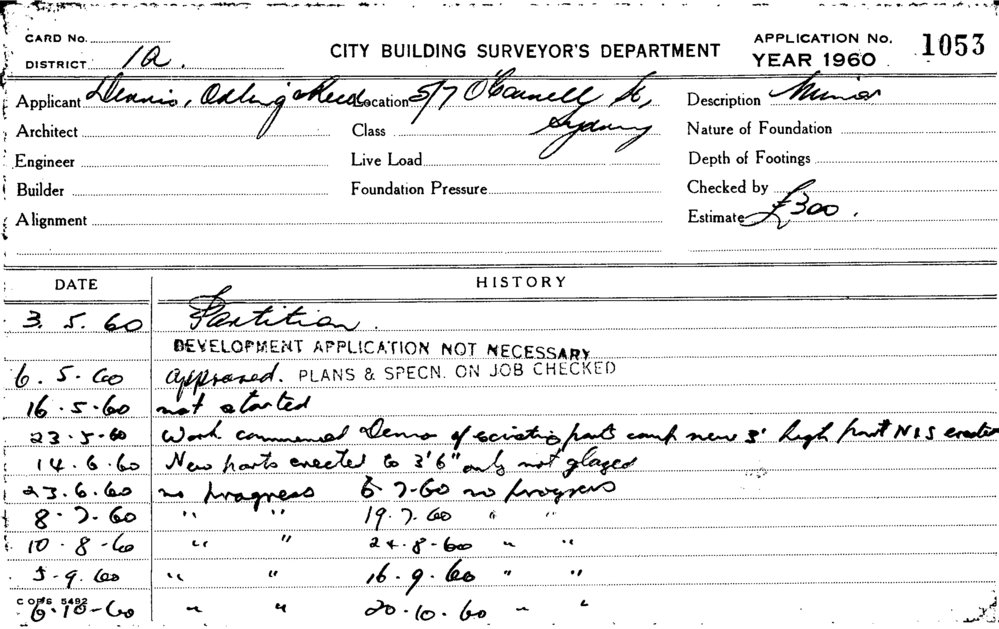 CARD No.
DISTRICT 1a.
CITY BUILDING SURVEYOR'S DEPARTMENT
APPLICATION No. 1053
YEAR 1960
Applicant Dennis, Odling & Reed Location 5/7 O'Connell St, Description Minor
Architect Class Sydney Nature of Foundation
Engineer Live Load Depth of Footings
Builder Foundation Pressure Checked by
Alignment Estimate £300.
DATE HISTORY
3. 5. 60 Partition.
DEVELOPMENT APPLICATION NOT NECESSARY
6. 5. 60 approved. PLANS & SPECN. ON JOB CHECKED
16.5.60 not started
23.5.60 Work commenced Demo of existing parts comp new 3' high part N I S erection
14.6.60 New parts erected to 3'6" only not glazed
23.6.60 no progress 6 7-60 no progress
8-7-60 " " 19.7.60 " "
10-8-60 " " 24-8-60 " "
5-9.60 " " 16.9.60 " "
COPS 5492
6-10-60 " " 20.10.60 " "